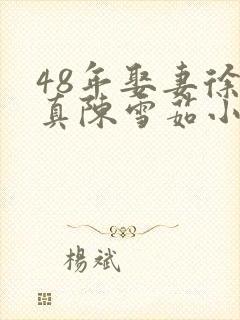 48年娶妻徐
真陳雪茹小
楊斌